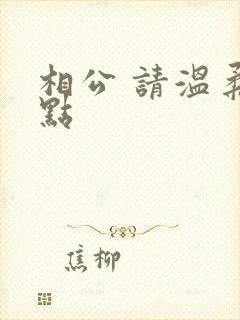 相公 請溫柔
點
焦柳